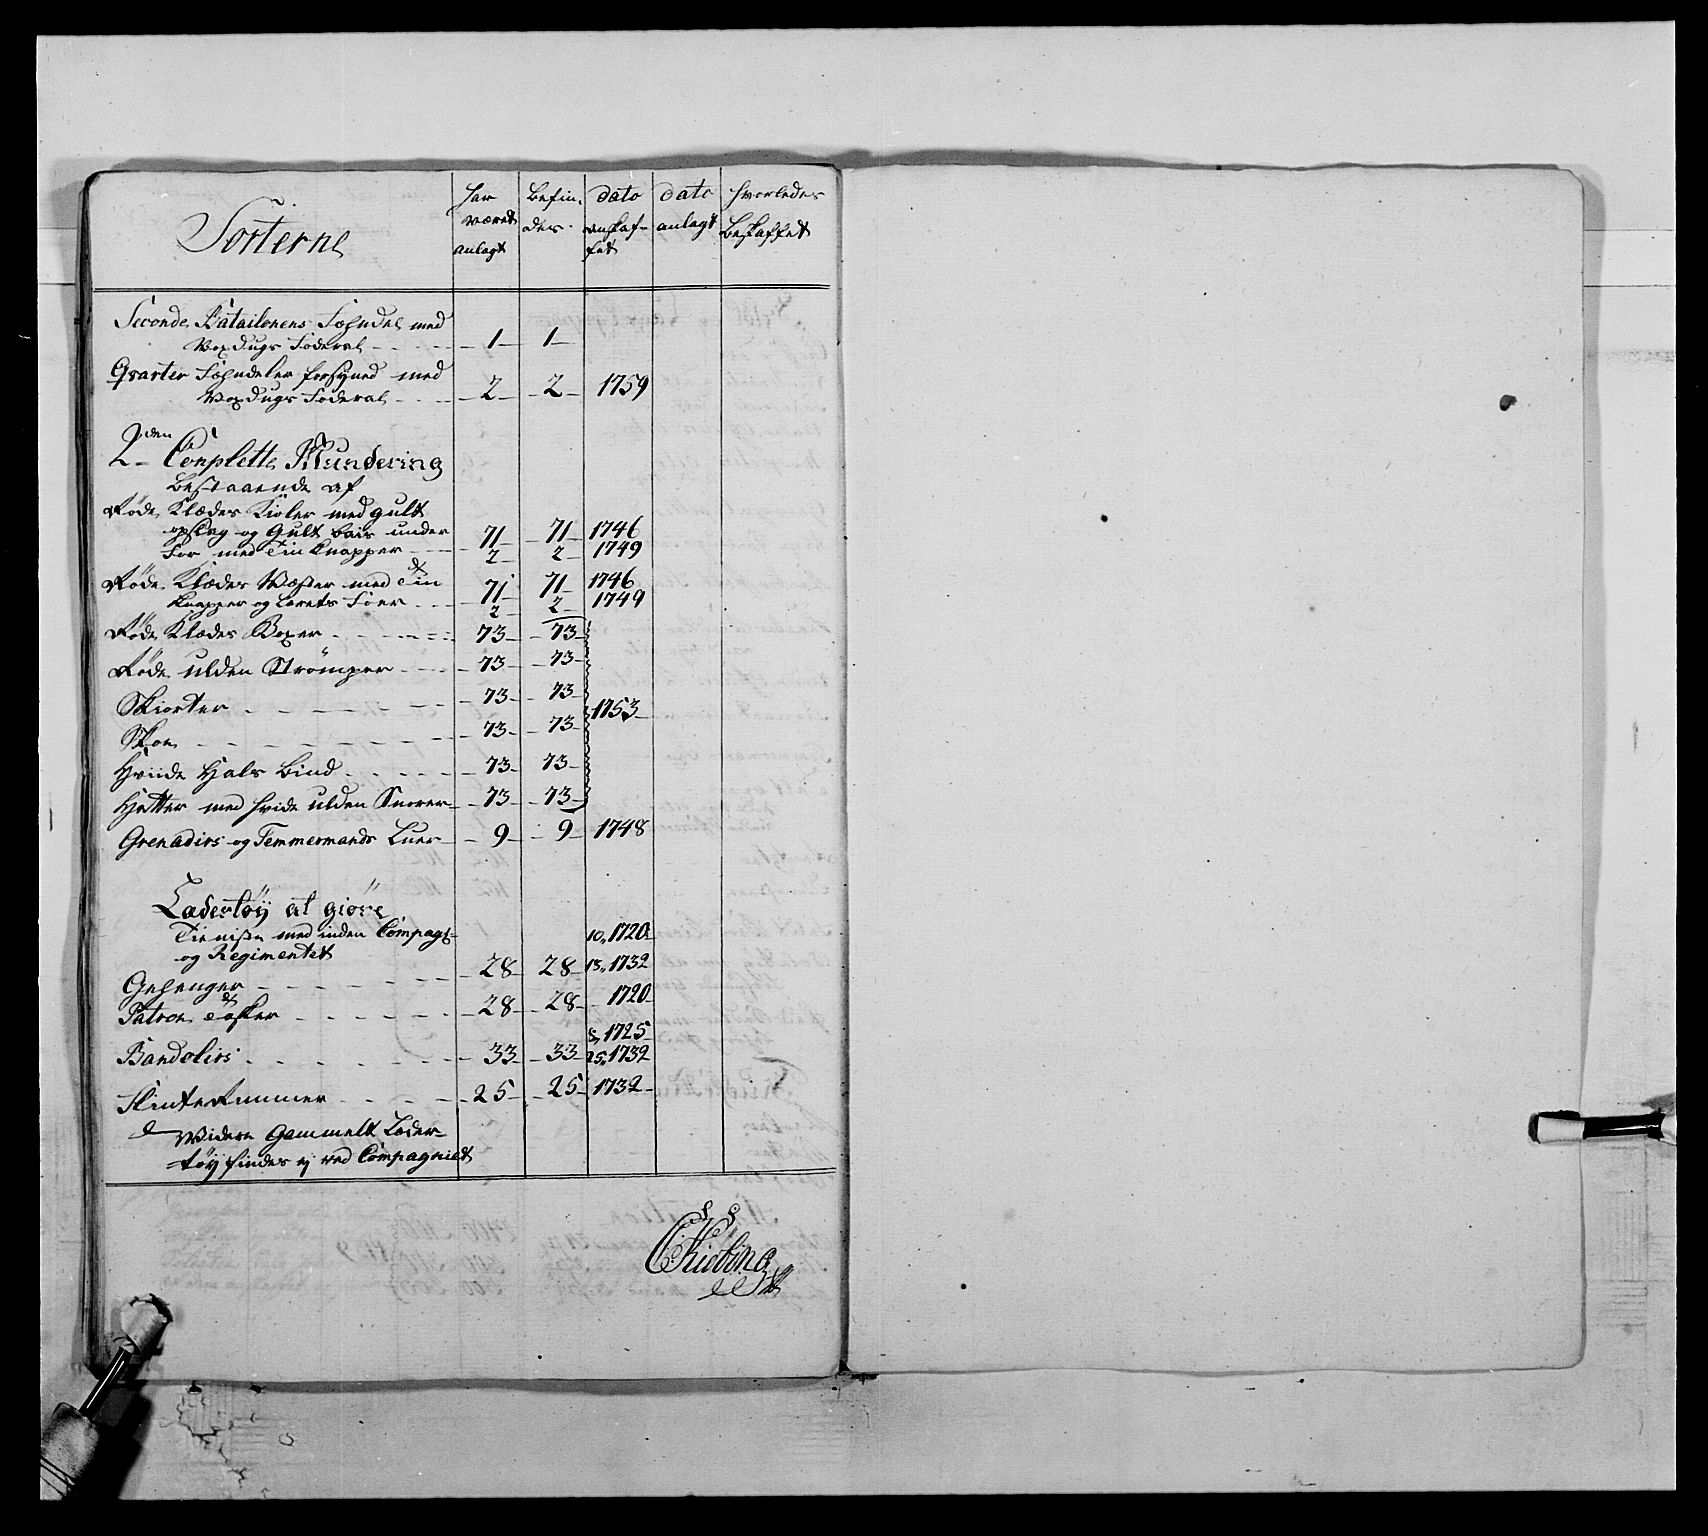 Sorterne | har været anlagt | befindes | dato anskaffet | dato anlagt | hvorledes beskaffet
Seconde Batailonens Fehndel med
Voxdugs Foderal - 1 - 1
Qvarter Fehndeler forsyned med
Voxdugs Foderal - 2 - 2 - 1759
2den Conplette Mundering
bestaaende af
Røde Klædes Kioler med gult
opslag og Gult bais under 71 - 71 - 1746
For med Tin Knapper 2 - 2 - 1749
Røde Klædes Vester med Tin 71 - 71 - 1746
Knapper og Lærets Foer 2 - 2 - 1749
Røde Klædes Boxer 73 - 73
Røde ulden Strømper 73 - 73
Skiorter 73 - 73 - 1753
Skoe 73 - 73
Hviide Hals bind 73 - 73
Hatter med hvide ulden Snorer 73 - 73
Grenadirs og Temmermands Luer 9 - 9 - 1748
Lædertöÿ at giöre
Tieniste med inden Compagt: 10, 1720
og Regimentet 28 - 28 - 13, 1732
Gehenger
Patron Tasker 28 - 28 - 1720
8, 1725
Bandolirs 33 - 33 - 25, 1732
Flinte Remmer 25 - 25 - 1732
Videre Gammelt Læder-
töÿ findes ej ved Compagniet
C: Kiöbing